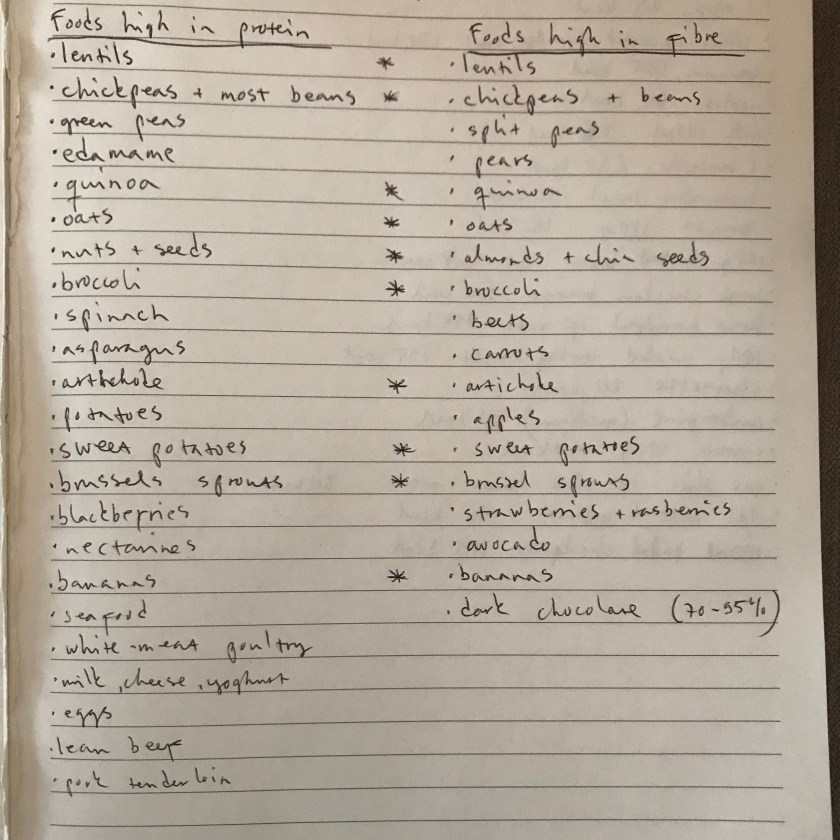 Foods high in protein Foods high in fibre
·lentils * ·lentils
·chickpeas + most beans * ·chickpeas + beans
·green peas ·split peas
·edamame ·pears
·quinoa * ·quinoa
·oats * ·oats
·nuts + seeds * ·almonds + chia seeds
·broccoli * ·broccoli
·spinach ·beets
·asparagus ·carrots
·artichoke * ·artichoke
·potatoes ·apples
·sweet potatoes * ·sweet potatoes
·brussels sprouts * ·brussel sprouts
·blackberries ·strawberries + rasberries
·nectarines ·avocado
·bananas * ·bananas
·seafood ·dark chocolate (70-95%)
·white-meat poultry
·milk, cheese, yoghurt
·eggs
·lean beef
·pork tenderloin